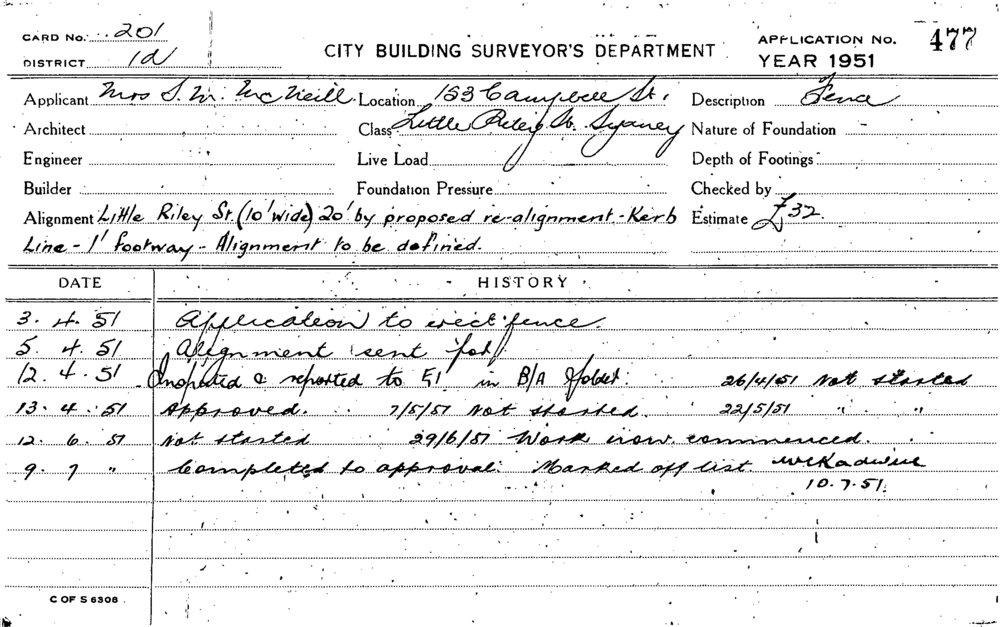 CARD No. 201
DISTRICT 1d
CITY BUILDING SURVEYOR'S DEPARTMENT
APPLICATION No. 477
YEAR 1951
Applicant Mrs S. M. McNeill Location 153 Campbell St. Description Fence
Architect Class Little Riley St. Sydney Nature of Foundation
Engineer Live Load Depth of Footings
Builder Foundation Pressure Checked by
Alignment Little Riley St (10' wide) 20' by proposed re-alignment - Kerb Estimate £32
Line - 1' footway - Alignment to be defined.
DATE HISTORY
3. 4. 51 Application to erect fence.
5. 4. 51 Alignment sent for
12. 4. 51 Inspected & reported to in B/A folder. 26/4/51 Not started
13. 4. 51 Approved. 7/5/51 Not started. 22/5/51 " "
12. 6. 51 Not started 29/6/51 Work now commenced.
9. 7 " Completed to approval. Marked off list
10.7.51.
C OF S 6306